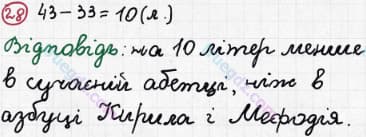 28 43-33=10(л.)
Відповідь: на 10 літер менше
в сучасній абетці, ніж в
азбуці Кирила і Мефодія.